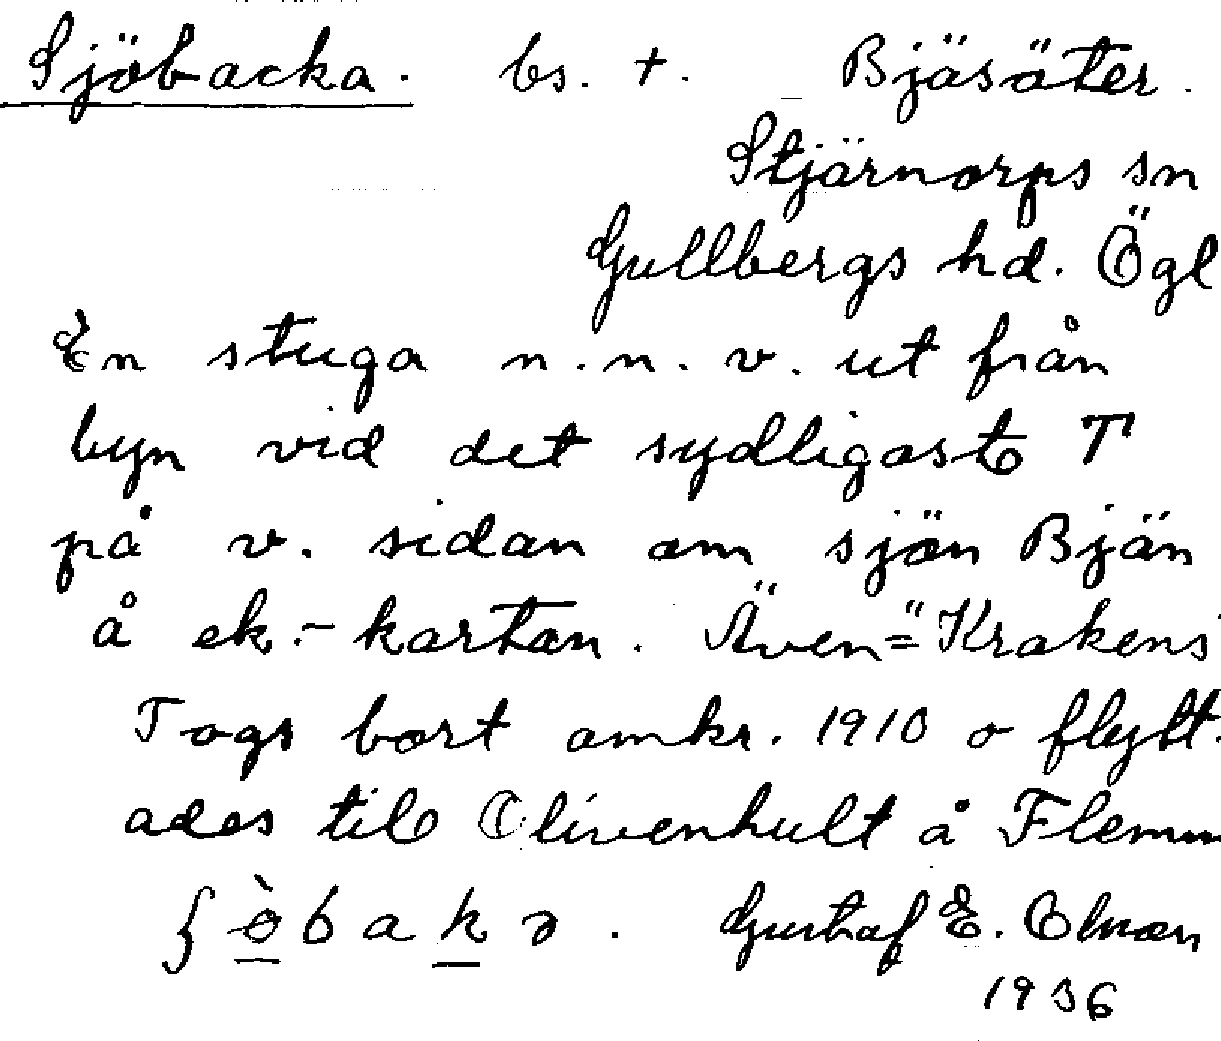 Sjöbacka. bs. +. Bjäsäter.
Stjärnorps sn
Gullbergs hd. Ögl
En stuga n.n.v. ut från
byn vid det sydligaste T
på v. sidan om sjön Bjän
å ek.-kartan. Även="Krakens
Togs bort omkr. 1910 o flytt-
ades till Olivenhult å Flemm
ʃòbakə. Gustaf E. Olson
1936